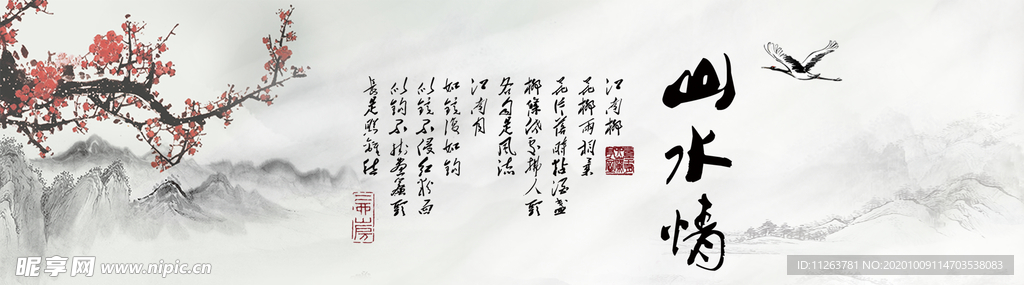 山水情
江南柳
花柳兩相柔
花片落時黏酒盞
柳條低處拂人頭
各自是風流
江南月
如鏡復如鈎
似鏡不侵紅粉面
似鈎不挂畫簾頭
長是照離愁
昵享网 www.nipic.cn
ID:11263781 NO:20201009114703538083